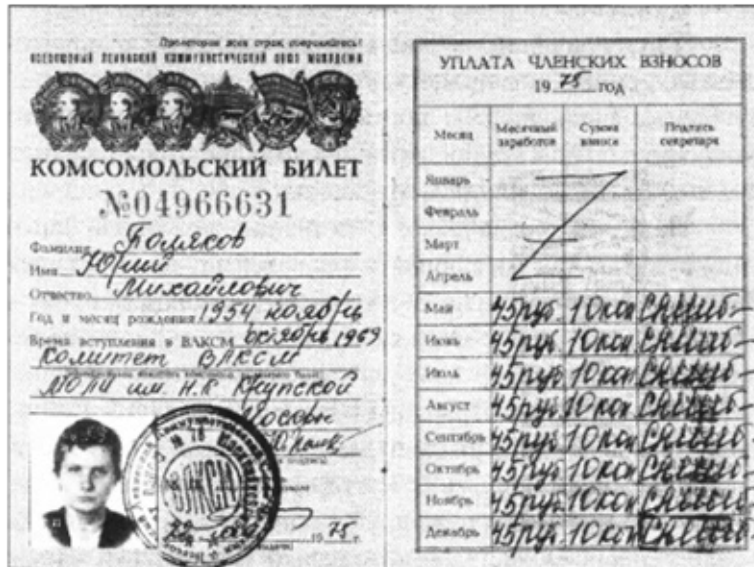 Пролетарии всех стран, соединяйтесь!
ВСЕСОЮЗНЫЙ ЛЕНИНСКИЙ КОММУНИСТИЧЕСКИЙ СОЮЗ МОЛОДЕЖИ
КОМСОМОЛЬСКИЙ БИЛЕТ
№04966631
Фамилия Поляков
Имя Юрий
Отчество Михайлович
Год и месяц рождения 1954 ноябрь
Время вступления в ВЛКСМ октябрь 1969
Комитет ВЛКСМ
МОПИ им. Н.К Крупской
ВЛКСМ
1975 г.
УПЛАТА ЧЛЕНСКИХ ВЗНОСОВ
1975 год
Месяц Месячный заработок Сумма взноса Подпись секретаря
Январь
Февраль
Март
Апрель
Май 45руб. 10коп
Июнь 45руб. 10коп
Июль 45руб. 10коп
Август 45руб. 10коп
Сентябрь 45руб. 10коп
Октябрь 45руб. 10коп
Ноябрь 45руб. 10коп
Декабрь 45руб. 10коп